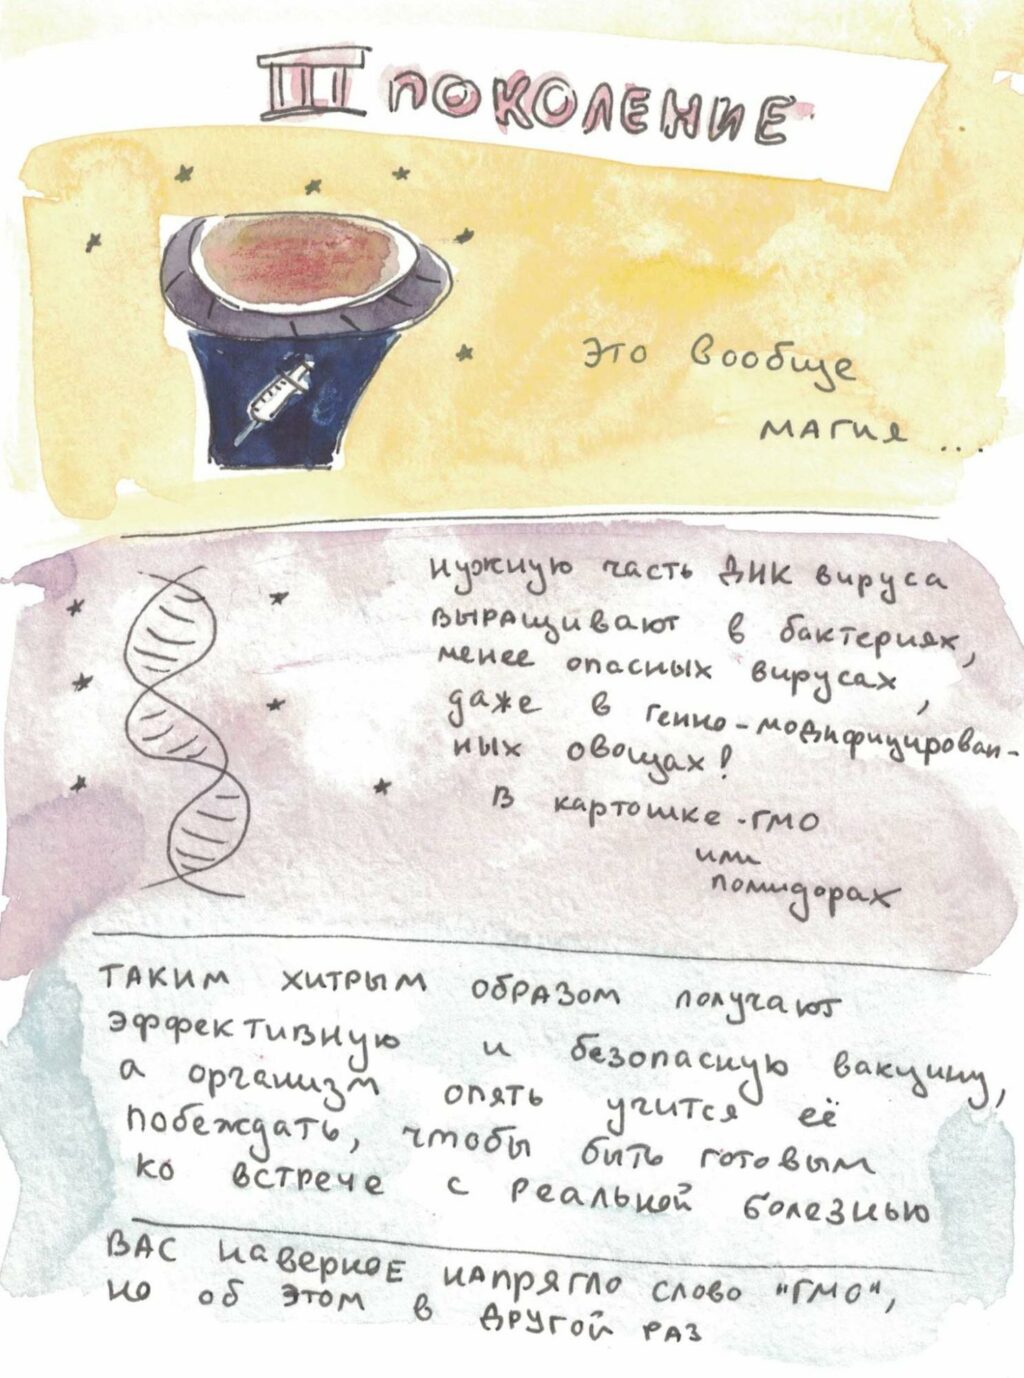 III ПОКОЛЕНИЕ
это вообще
магия ...
нужную часть ДНК вируса
выращивают в бактериях,
менее опасных вирусах,
даже в генно-модифицирован-
ных овощах!
В картошке-ГМО
или
помидорах
таким хитрым образом получают
эффективную и безопасную вакцину,
а организм опять учится её
побеждать, чтобы быть готовым
ко встрече с реальной болезнью
ВАС наверное напрягло слово "ГМО",
но об этом в другой раз